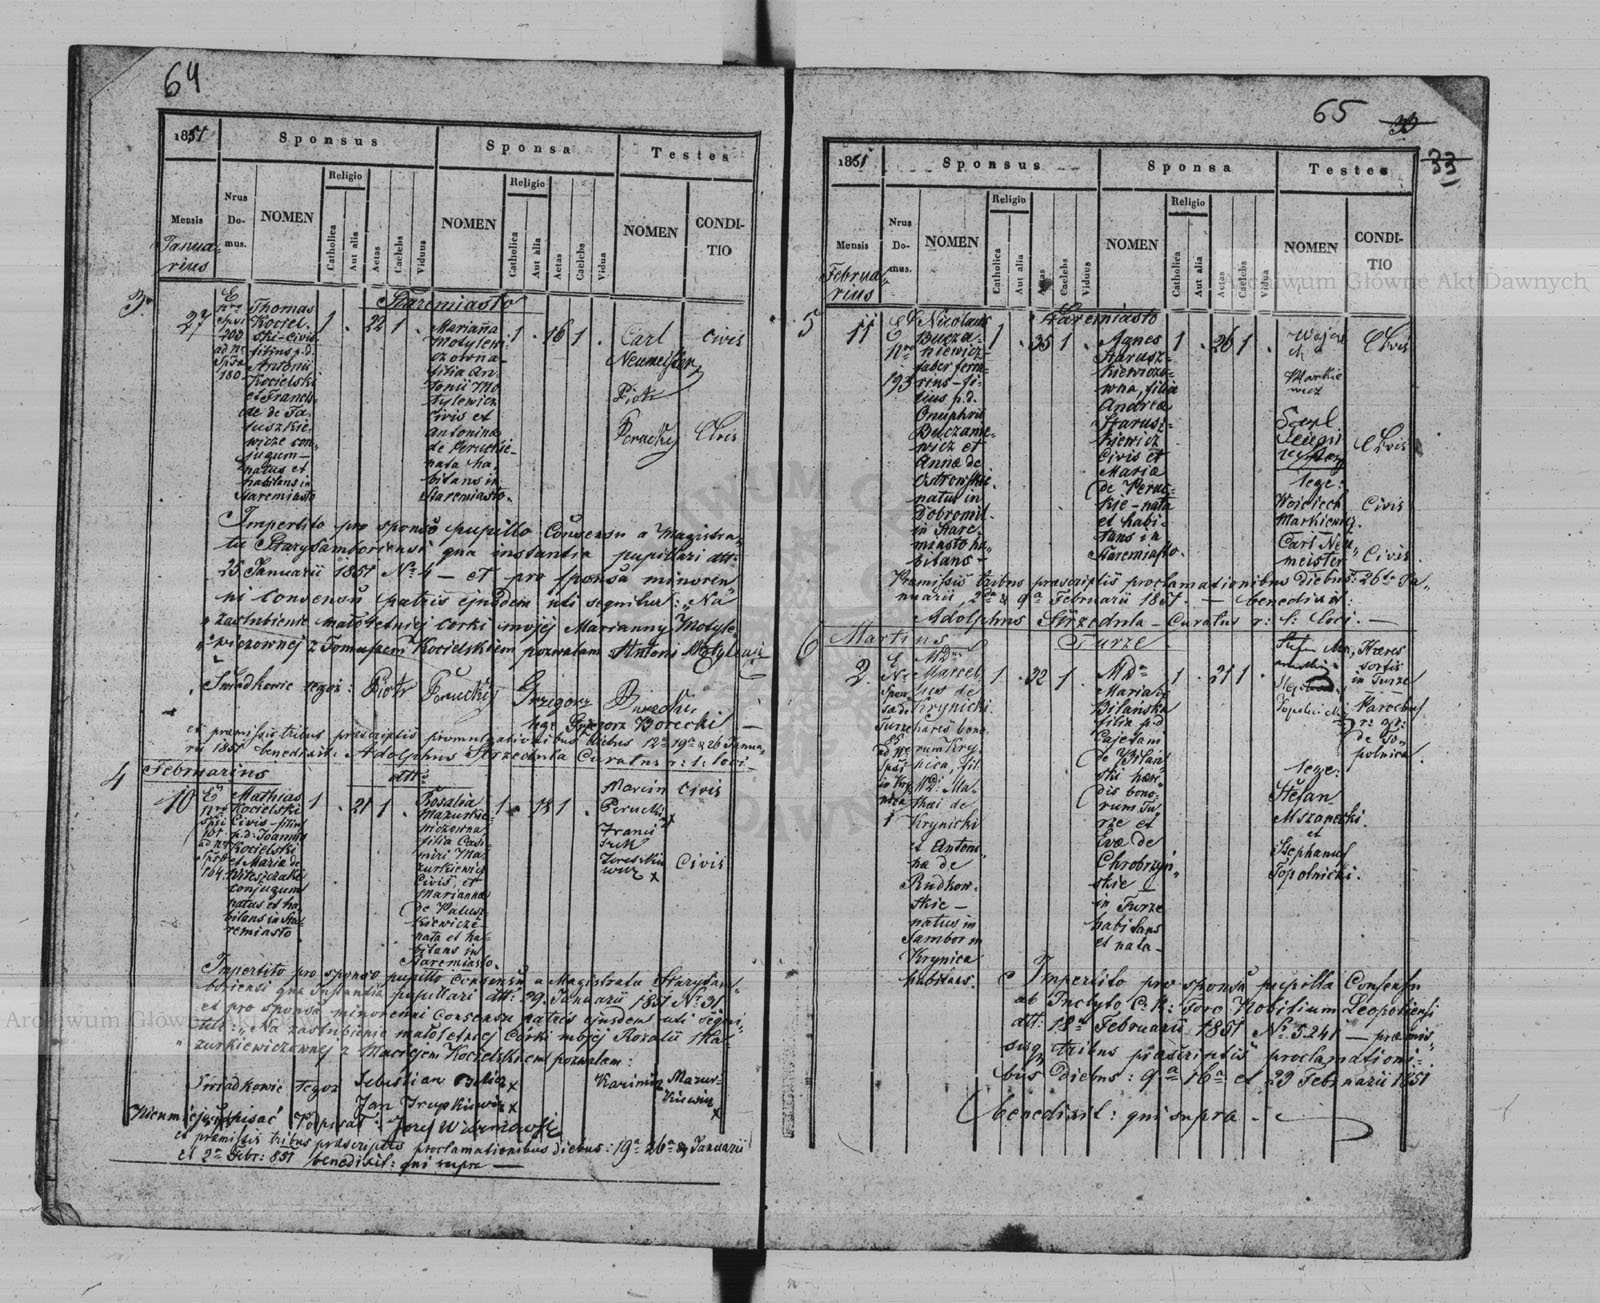 64
1851
Sponsus
Sponsa
Testes
Mensis
Nrus Do-mus.
NOMEN
Religio
Catholica
Aut alia
Aetas
Caelebs
Viduus
NOMEN
Religio
Catholica
Aut alia
Aetas
Caelebs
Vidua
NOMEN
CONDI-TIO
Janua-
rius
Staremiasto
3.
27
Thomas
Kociel-
ski civis
filius p.d.
Antonii
Kocielski
et Francis-
cae de Ja-
tuszkie-
wicze con-
jugum
natus et
habitans in
Staremiasto
1 . 22 1 .
Marianna
Motylewi-
czowna
filia An-
tonii Mo-
tylewicz
civis et
Antonina
de Peruckie
nata ha-
bitans in
Staremiasto.
1 . 16 1 .
Carl
Neumeister
Piotr
Perucky
Civis
Civis
Impertito pro sponso pupillo Consensu a Magistra-
tu Starysamboriensi qua instantia pupillari ddt:
25 Januarii 1851 No 4 — et pro sponsa minoren
ni Consensu patris ejusdem uti sequitur: "Na
"zaslubienie maloletniej corki mojej Marianny Motyle-
"wiczownej z Tomaszem Kocielskiem pozwalam Antoni Motylewicz
Swiadkowie tegoż: Piotr Perucky Grzegorz
Grzegorz Borecki —
et praemissis tribus praescriptis promulgationibus diebus 12a 19a & 26 Janua-
rii 1851 benedixit: Adolphus Strzedula Curatus r: l: loci —
4
Februarius
10
Mathias
Kocielski
Civis - filius
p.d. Joannis
Kocielski
et Maria de
conjugum
natus et ha-
bitans in Sta-
remiasto
1 . 21 1 .
Rosalia
Mazurkie-
wiczowna
filia Casi-
miri Ma-
zurkiewicz
Civis, et
Marianna
de Palusz-
kiewicze
nata et ha-
bitans in
Staremiasto.
Marcin
Perucki x
Franci
szek
x
Civis
Civis
Impertito pro sponso pupillo Consensu a Magistratu Starysam-
boriensi qua Instantia pupillari ddt: 29 Januarii 1851 No 31
et pro sponsa minorenni Consensu patris ejusdem uti sequi-
tur: "Na zaslubienie maloletniej Córki mojej Rozalii Ma-
"zurkiewiczownej z Maciejem Kocielskiem pozwalam:
Swiadkowie tegoz Sebestian x
Jan x
Kazimierz Mazur-
kiewicz x
Nieumiejących pisać Podpisał: Jozef
et praemissis tribus praescriptis proclamationibus diebus: 19a 26a & Januarii
et 2a Febr: 851 benedixit: qui supra —
65
33
1851
Sponsus
Sponsa
Testes
Mensis
Nrus Do-mus.
NOMEN
Religio
Catholica
Aut alia
Aetas
Caelebs
Viduus
NOMEN
Religio
Catholica
Aut alia
Aetas
Caelebs
Vidua
NOMEN
CONDI-TIO
Februa-
rius
Staremiasto
5
11
193
Nicolaus
Bucza-
niewicz
faber ferra-
rius - fi-
lius p.d.
Onuphrii
Buczanie-
wicz et
Annae de
Ostrowskie
natus in
Dobromil
in Stare-
miasto ha-
bitans -
1 . 35 1 .
Agnes
Starusz-
kiewiczo-
wna, filia
Andreae
Starusz-
kiewicz
Civis et
Maria
de Peruc-
kie - nata
et habi-
tans in
Staremiasto.
1 . 26 1 .
Markie
wicz
lege:
Woiciech
Markiewicz.
Carl Neu-
meister
Civis
Civis
Civis
Civis
Praemissis tribus praescriptis proclamationibus diebus: 26ta Ja-
nuarii, 2da & 9a Februarii 1851. — benedixit:
Adolphus Strzedula - Curatus r: l: loci. —
6
Martius
Turze
2.
Marcel-
lus de
Krynicki
haeres bono-
rum Kry-
nica, fil.
Ma-
thai de
Krynicki
et Antoni-
na de
Rudkow-
skie —
natus in
Sambor in
Krynica
habitans.
1 . 32 1 .
Maria de
Bilańska
filia p.d.
Cajetani
de Bilan-
ski haere-
dis bono-
rum Tu-
rze et
Evae de
Chrobrzyń-
skie —
in Turze
habitans
et nata —
1 . 21 1 .
Haeres
sortis
in Turze
Parochus
r: gr:
de To-
polnica.
lege:
Stefan
Mszanecki.
et
Stephanus
Topolnicki.
Impertito pro sponsa pupilla Consensu
ab Inclyto C. R: Foro Nobilium Leopoliensi
ddt: 18a Februarii 1851 No 5241 — praemis-
sisq tribus praescriptis proclamationi-
bus Diebus: 9a 16a et 23 Februarii 1851
benedixit: qui supra —
Archiwum Główne Akt Dawnych